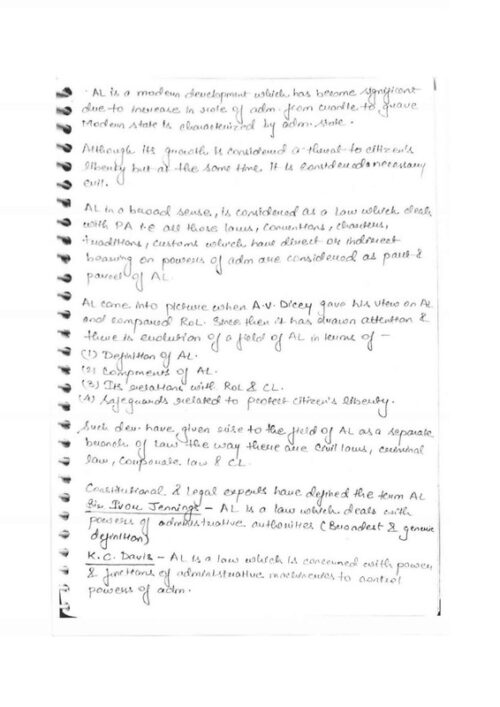 · AL is a modern development which has become significant
due to increase in role of adm. from cradle to grave
Modern state is characterized by adm. state.
Although its growth is considered a threat to citizen's
liberty but at the same time it is considered a necessary
evil.
AL in a broad sense, is considered as a law which deals
with PA i.e all those laws, conventions, charters,
traditions, customs which have direct or indirect
bearing on powers of adm are considered as part &
parcel of AL.
AL came into picture when A.V. Dicey gave his view on AL
and compared RoL. Since then it has drawn attention &
there is evolution of a field of AL in terms of -
(1) Definition of AL.
(2) Components of AL.
(3) Its relations with RoL & CL.
(4) Safeguards related to protect citizen's liberty.
Such dev. have given rise to the field of AL as a separate
branch of law the way there are civil laws, criminal
law, corporate law & CL.
Constitutional & Legal experts have defined the term AL
Sir Ivon Jennings - AL is a law which deals with
powers of administrative authorities (Broadest & generic
definition)
K.C. Davis - AL is a law which is concerned with power
& functions of administrative machineries to control
powers of adm.